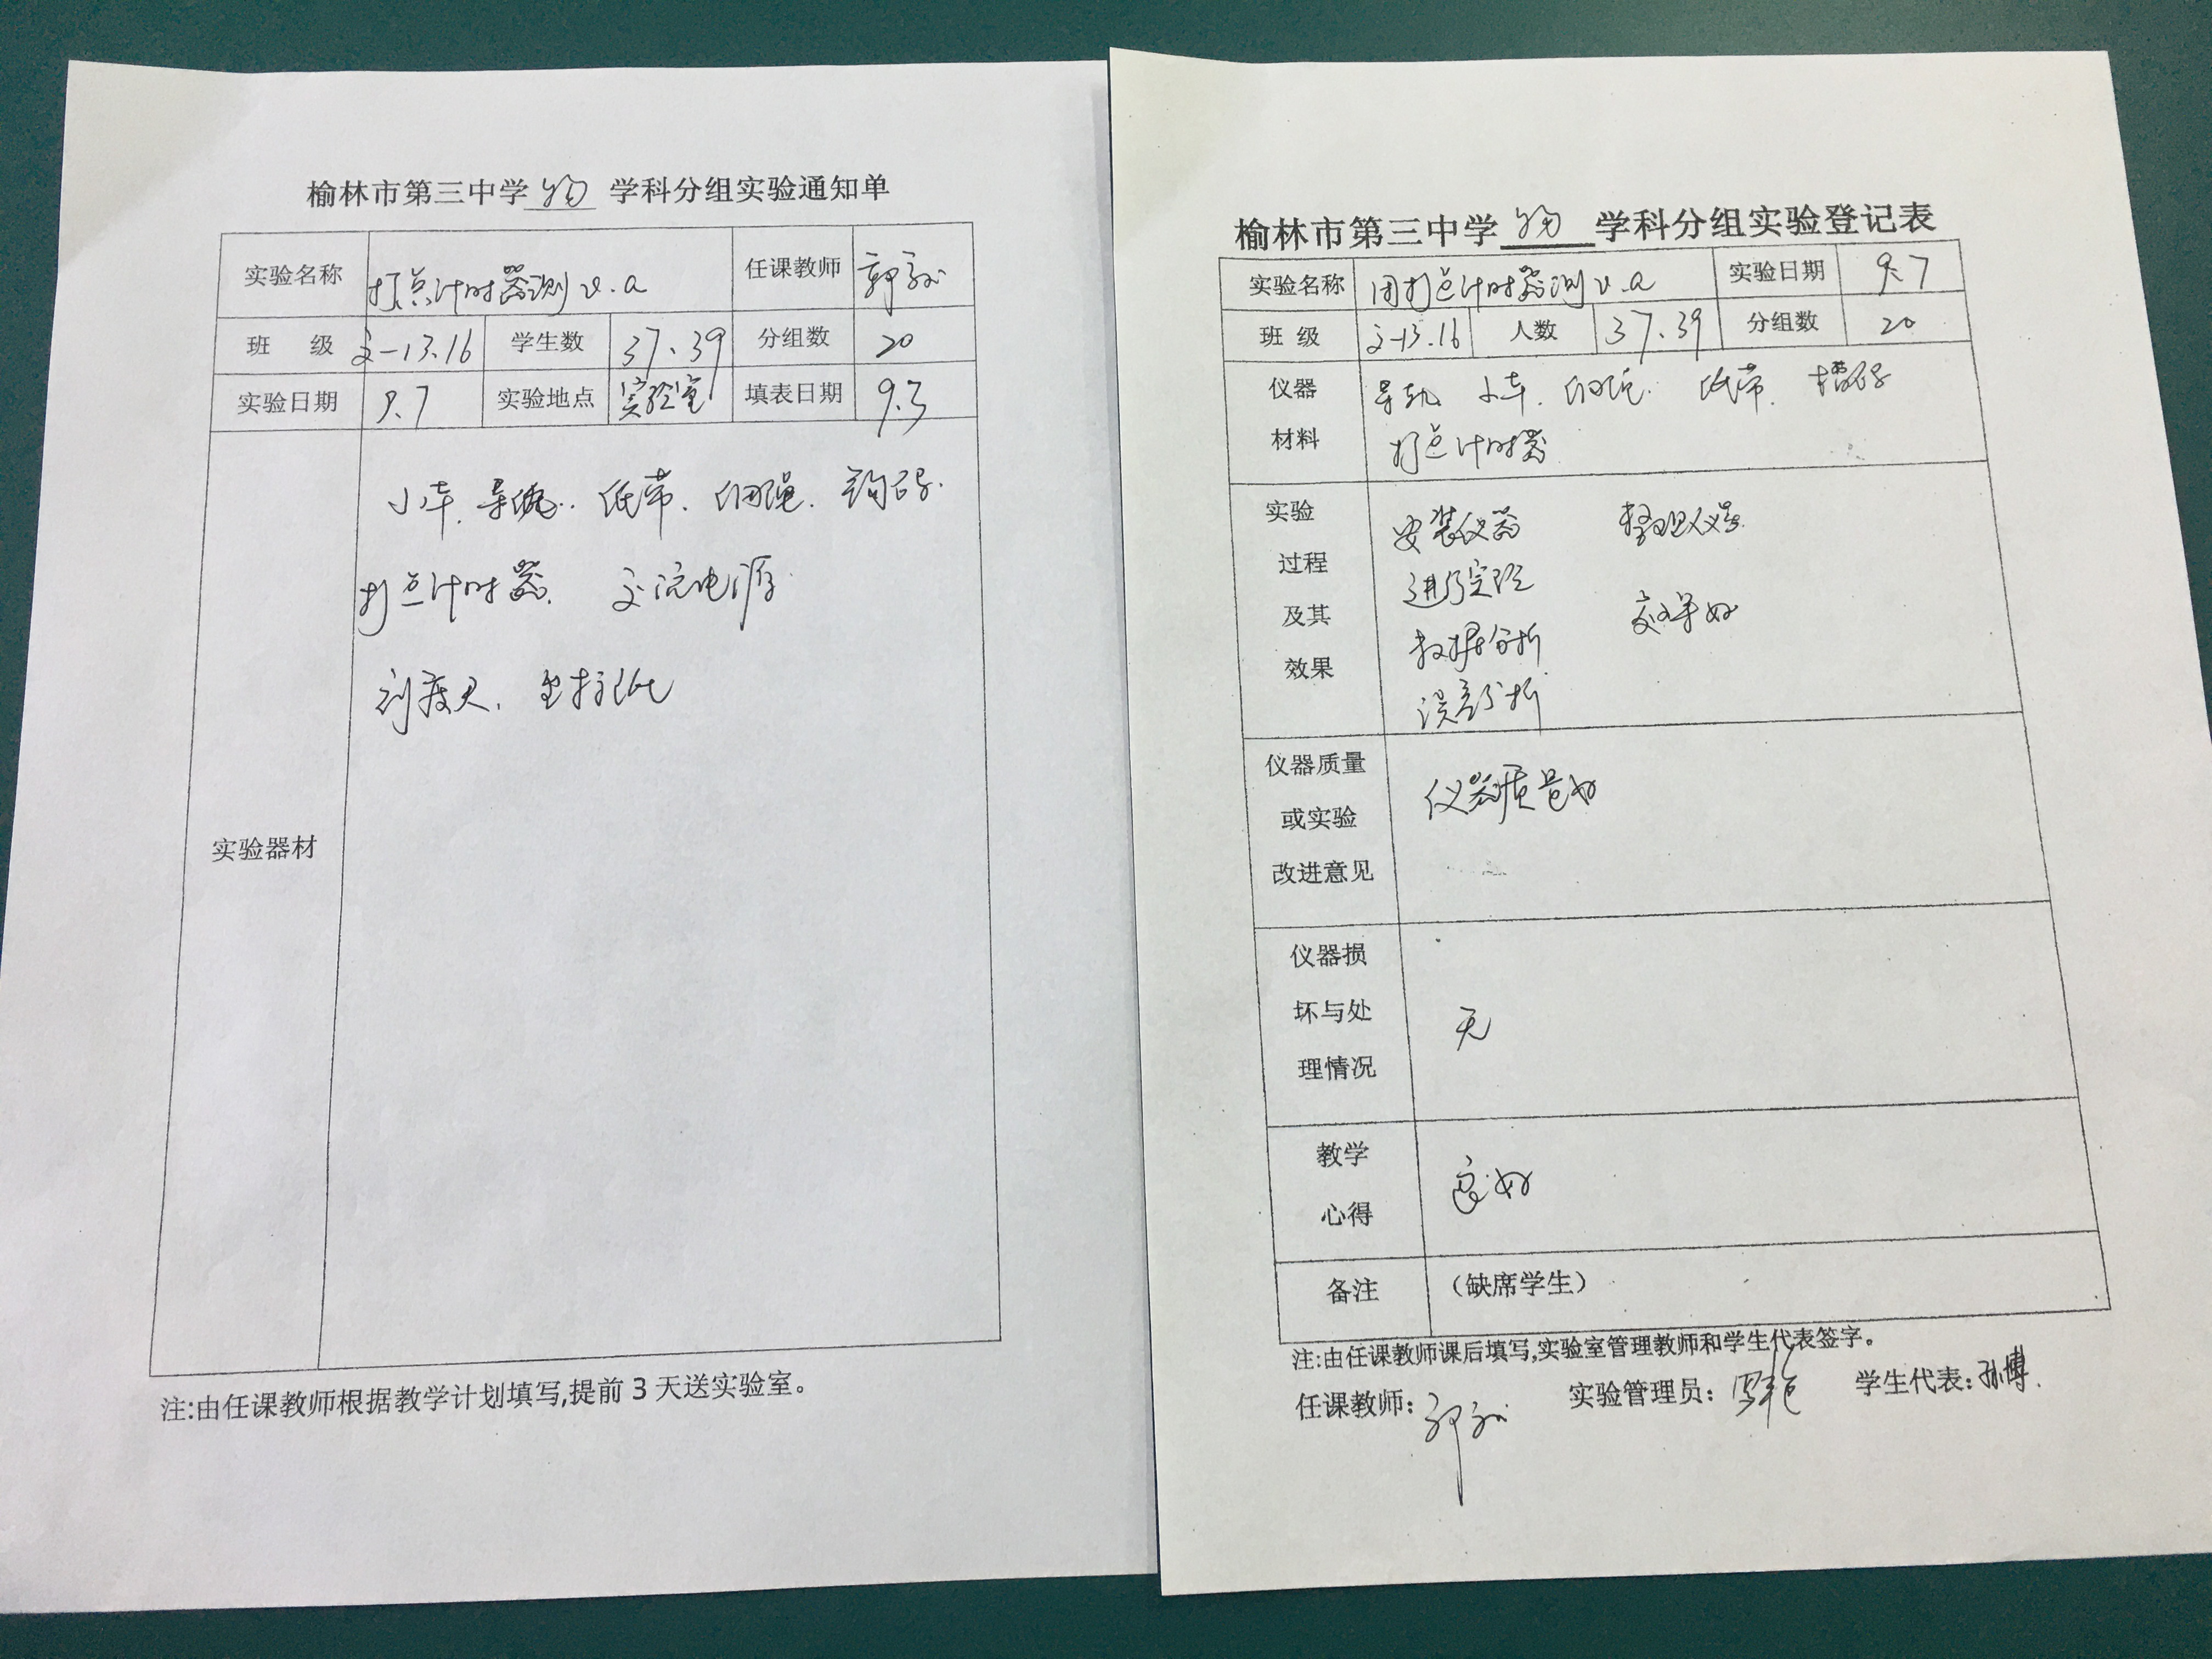 榆林市第三中学 物 学科分组实验通知单
实验名称 打点计时器测v.a 任课教师 郭
班 级 -13.16 学生数 37、39 分组数 20
实验日期 9.7 实验地点 实验室 填表日期 9.3
实验器材
小车、导轨、纸带、细绳、钩码、
打点计时器、 交流电源
刻度尺、坐标纸
注:由任课教师根据教学计划填写,提前3天送实验室。
榆林市第三中学 物 学科分组实验登记表
实验名称 用打点计时器测v.a 实验日期 9.7
班 级 -13.16 人数 37.39 分组数 20
仪器 导轨、小车、细绳、纸带、
材料 打点计时器
实验 安装仪器 整理仪器
过程 进行实验
及其 数据分析 效果好
效果 误差分析
仪器质量 仪器质量好
或实验
改进意见
仪器损
坏与处 无
理情况
教学 良好
心得
备注 （缺席学生）
注:由任课教师课后填写,实验室管理教师和学生代表签字。
任课教师：郭 实验管理员： 学生代表：孙博